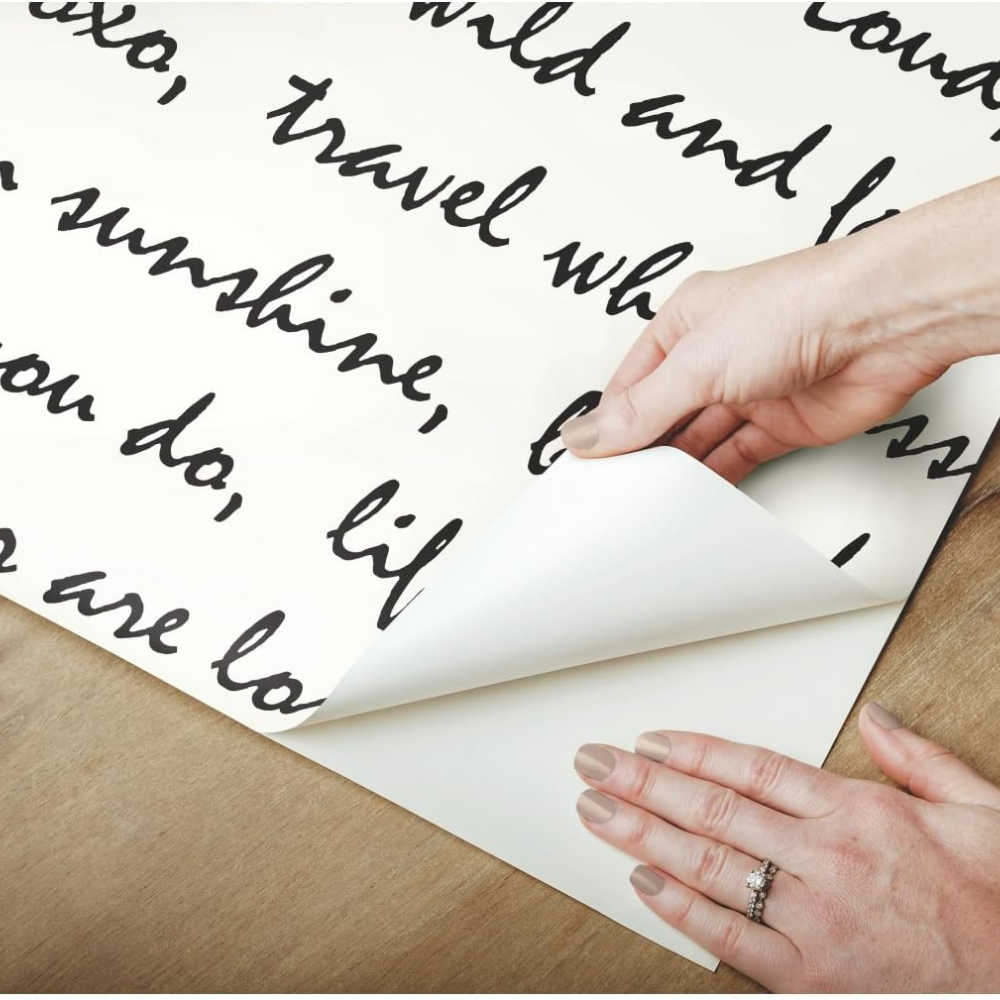 loud,
wild and
xoxo, travel wh ss
sunshine,
you do, lif
are lo